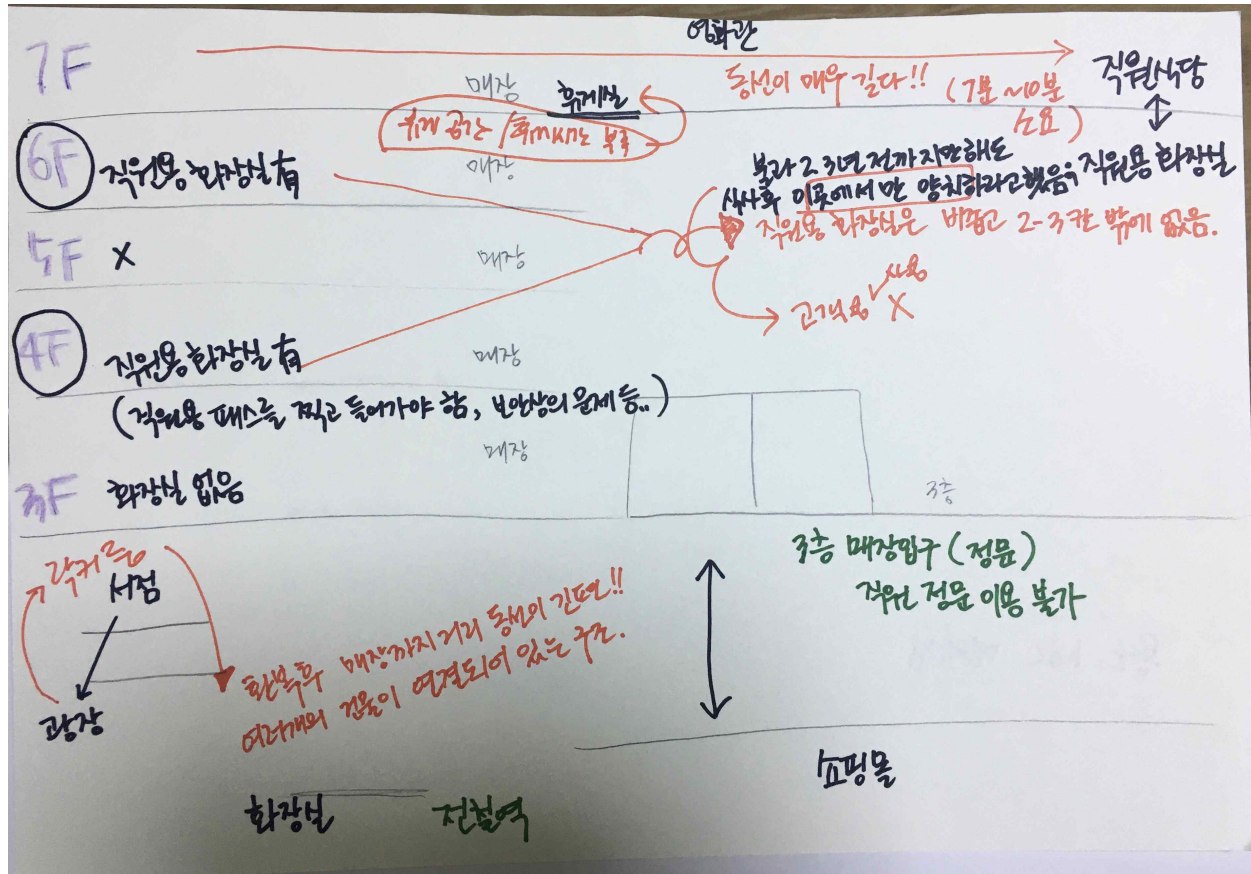 영화관
7F
동선이 매우 길다!! (7분~10분 소요)
직원식당
매장
휴게실
휴게 공간/휴게시간 부족
6F 직원용 화장실 有
매장
불과 2,3년 전까지만해도
식사후 이곳에서만 양치하라고했음; 직원용 화장실
직원용 화장실은 비좁고 2-3칸 밖에 없음.
5F X
매장
고객용 사용 X
4F 직원용 화장실 有
매장
(직원용 패스를 찍고 들어가야 함, 보안상의 문제 등..)
매장
3F 화장실 없음
3층
3층 매장입구 (정문)
직원 정문 이용 불가
락커룸
서점
광장
환복후 매장까지 거리 동선이 긴편!!
여러개의 건물이 연결되어 있는 구조.
쇼핑몰
화장실
전철역